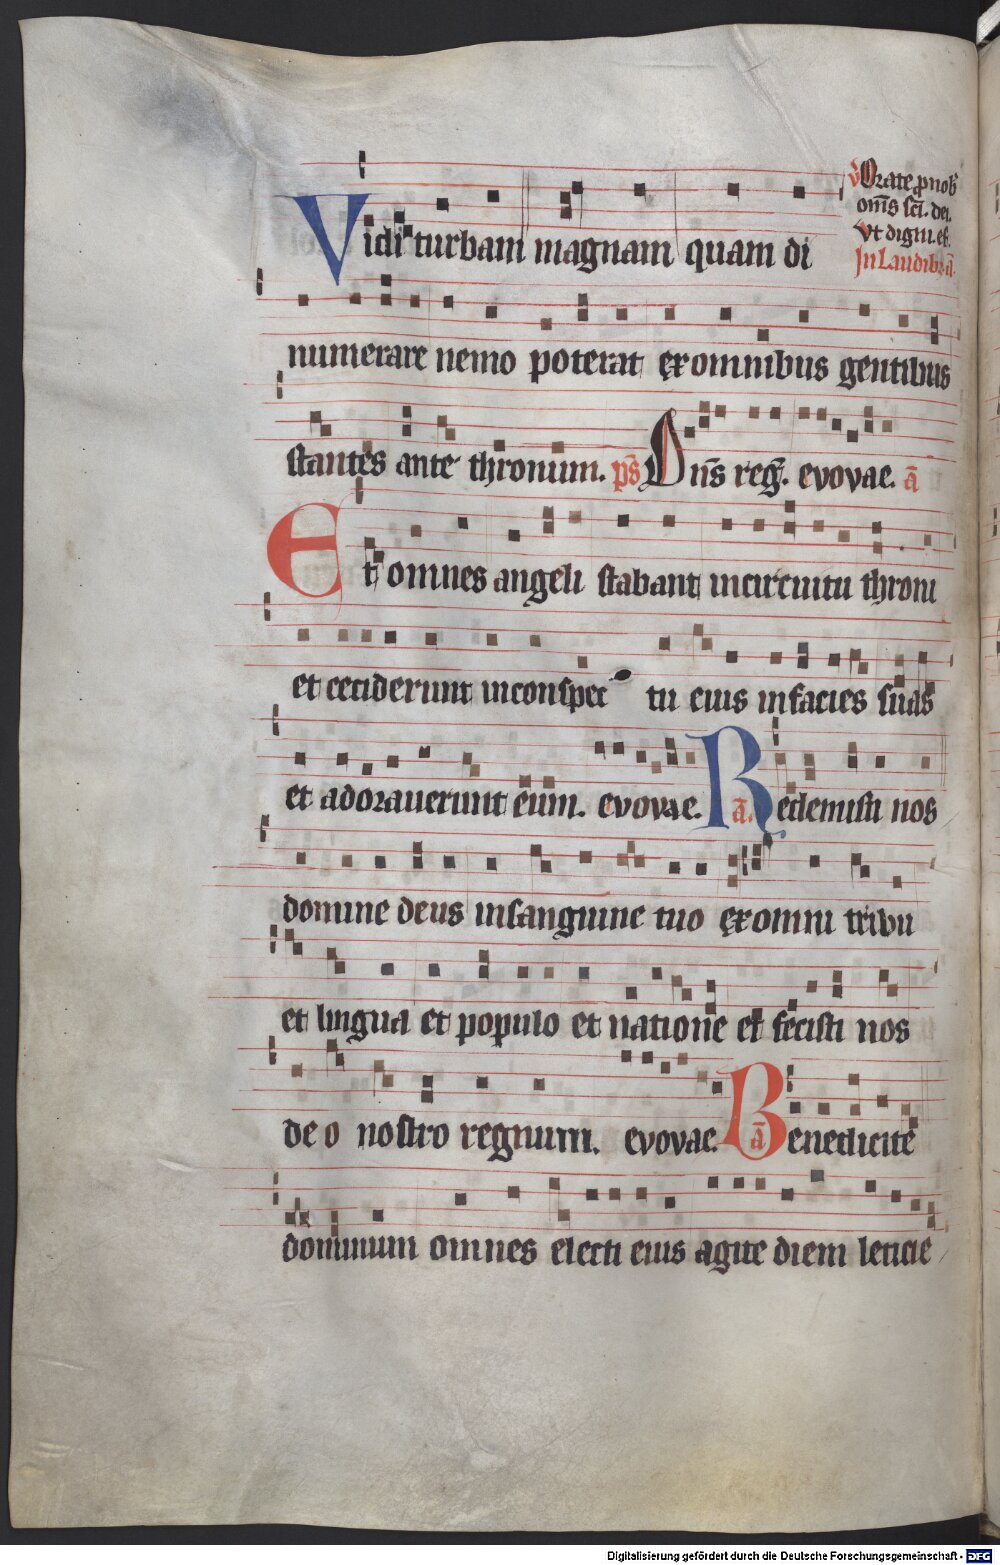 Vidi turbam magnam quam di
℣ Orate p nob
om̄s sci. dei.
Vt digni. ef.
In Laudib9 ā.
numerare nemo poterat ex omnibus gentibus
stantes ante thronum. ps̄ Dn̄s reg. evovae. ā
Et omnes angeli stabant in circuitu throni
et ceciderunt in conspec tu eius in facies suas
et adoraverunt eum. evovae. ā. Redemisti nos
domine deus in sanguine tuo ex omni tribu
et lingua et populo et natione et fecisti nos
deo nostro regnum. evovae. ā Benedicite
dominum omnes electi eius agite diem leticie
Digitalisierung gefördert durch die Deutsche Forschungsgemeinschaft - DFG